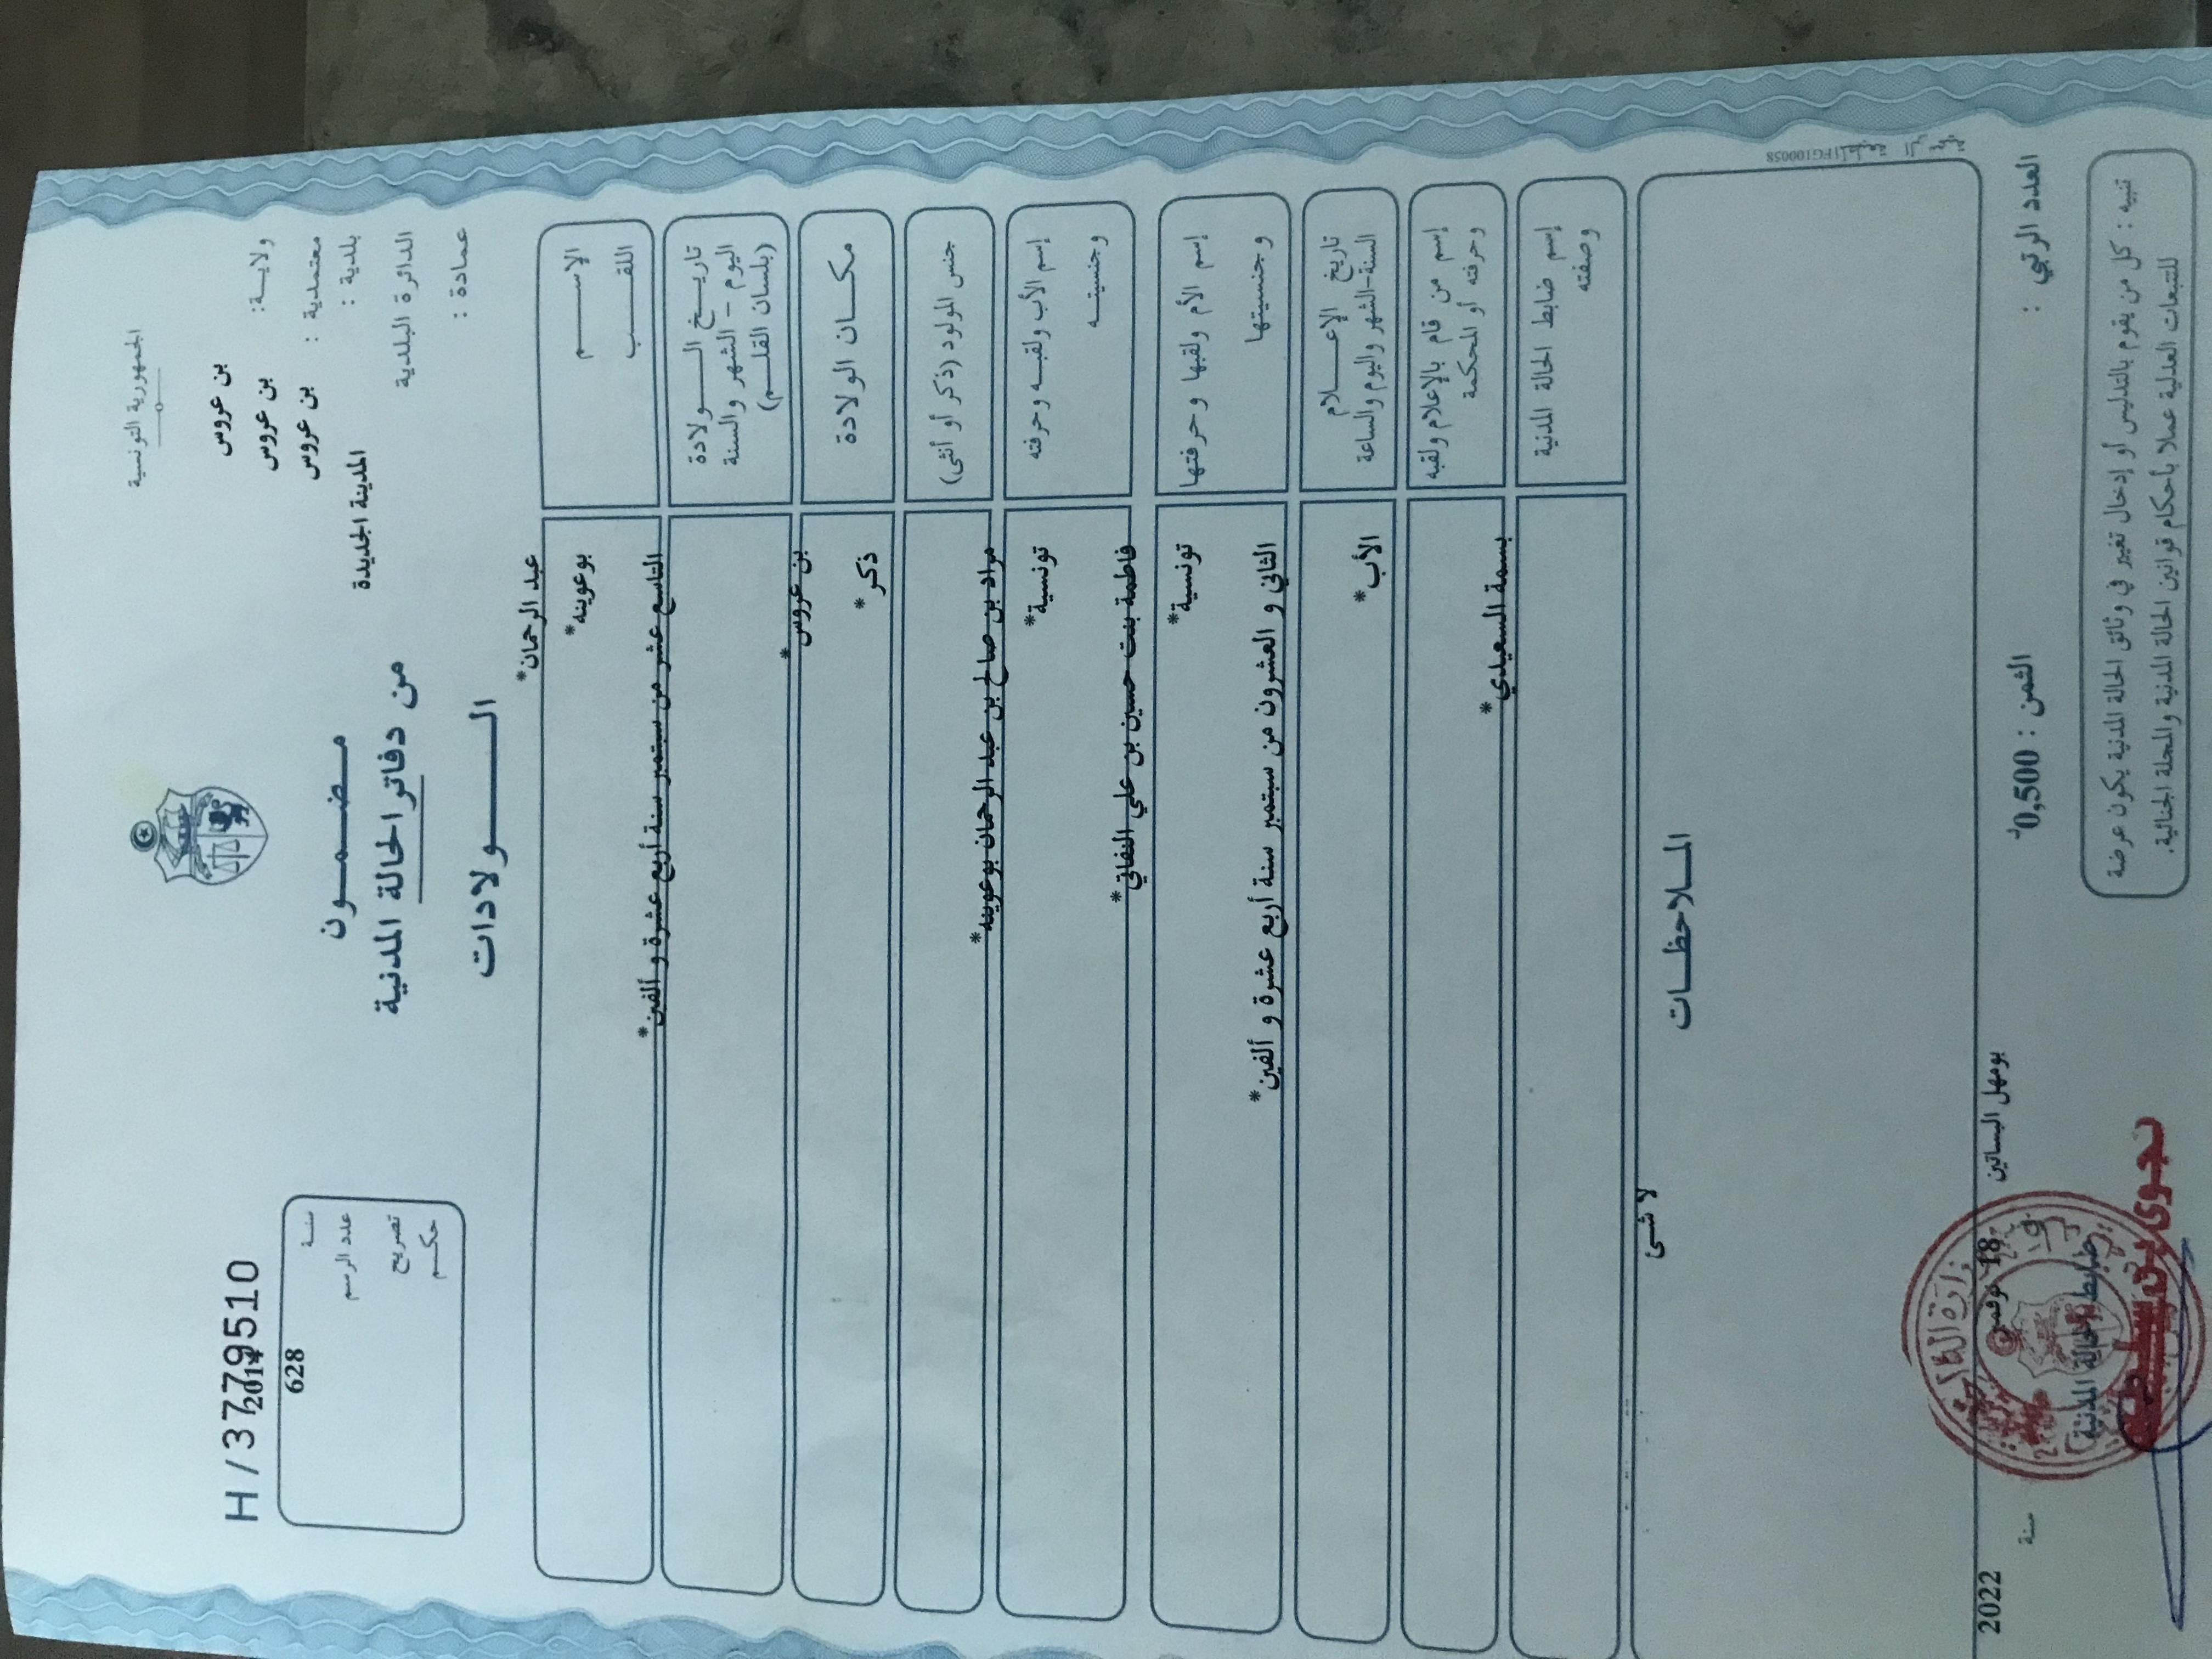 الجمهورية التونسية
ولاية: بن عروس
معتمدية : بن عروس
بلدية : بن عروس
الدائرة البلدية المدينة الجديدة
عمادة :
مضمون
من دفاتر الحالة المدنية
الولادات
H/3779510
سنة 2014
عدد الرسم 628
تصريح
حكم
الاسم عبد الرحمان*
اللقب بوعوينه*
تاريخ الولادة
اليوم - الشهر والسنة
(بلسان القلم)
التاسع عشر من سبتمبر سنة أربع عشرة و ألفين*
مكان الولادة بن عروس*
جنس المولود (ذكر أو أنثى) ذكر*
إسم الأب ولقبه وحرفته مراد بن صالح بن عبد الرحمان بوعوينه*
وجنسيته تونسية*
إسم الأم ولقبها وحرفتها فاطمة بنت حسين بن علي النفاتي*
وجنسيتها تونسية*
تاريخ الإعلام
السنة-الشهر واليوم والساعة
الثاني و العشرون من سبتمبر سنة أربع عشرة و ألفين*
إسم من قام بالإعلام ولقبه
وحرفته أو المحكمة
الأب*
إسم ضابط الحالة المدنية
وصفته
بسمة السعيدي*
الملاحظات
لا شئ
بومهل البساتين 18 نوفمبر سنة 2022
العدد الرتبي :
الثمن : 0,500د
ضابط الحالة المدنية
تنبيه : كل من يقوم بالتدليس أو إدخال تغيير في وثائق الحالة المدنية يكون عرضة
للتبعات العدلية عملا بأحكام قوانين الحالة المدنية والمجلة الجنائية.